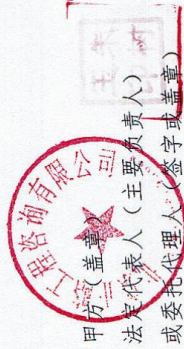 甲方（盖章）
法定代表人（主要负责人）
或委托代理人（签字或盖章）
工程咨询有限公司